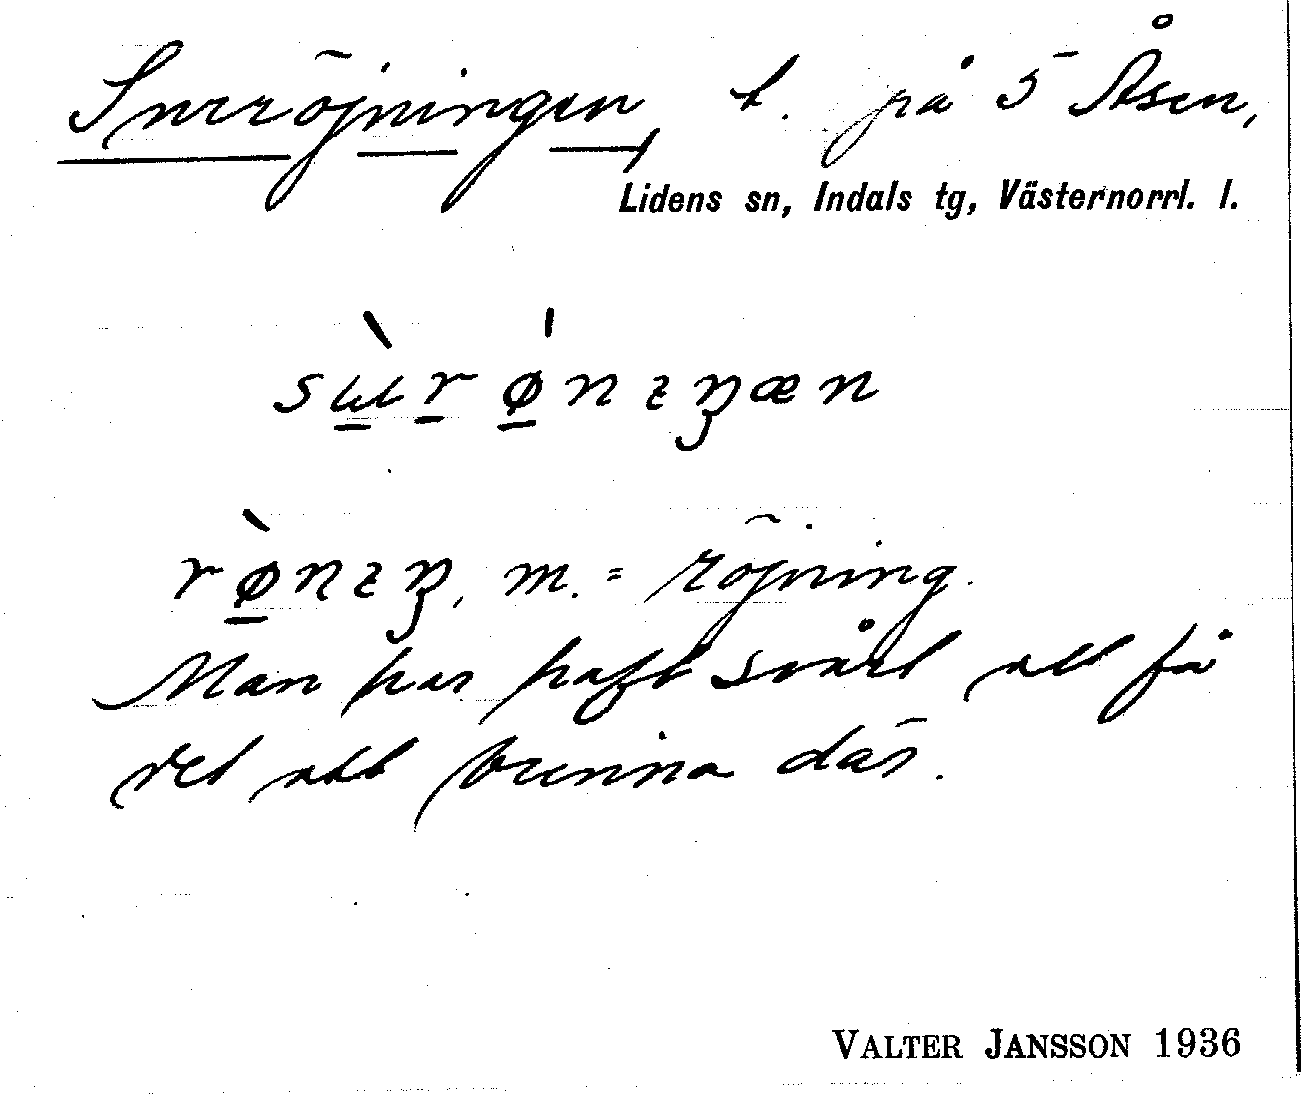 Surröjningen, t. på 5 Åsen,
Lidens sn, Indals tg, Västernorrl. l.
sɯ̲̀r̲ǿ̲nɪŋæn
rø̲̀nɪŋ, m. = röjning.
Man har haft svårt att få
det att brinna där.
VALTER JANSSON 1936